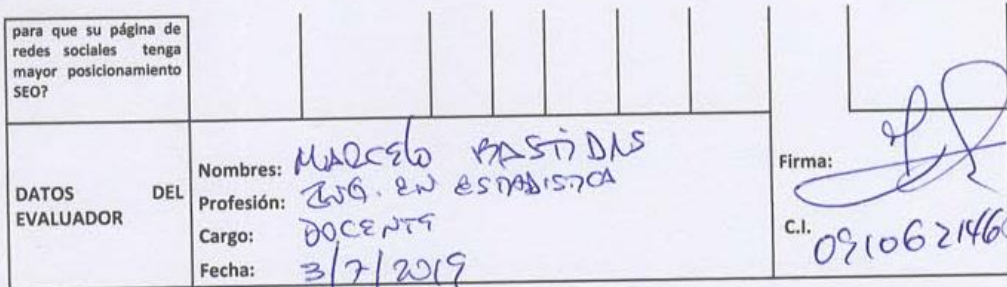 para que su página de
redes sociales tenga
mayor posicionamiento
SEO?
DATOS DEL
EVALUADOR
Nombres: MARCELO BASTIDAS
Profesión: ING. EN ESTADISTICA
Cargo: DOCENTE
Fecha: 3/7/2019
Firma:
C.I. 0910621460